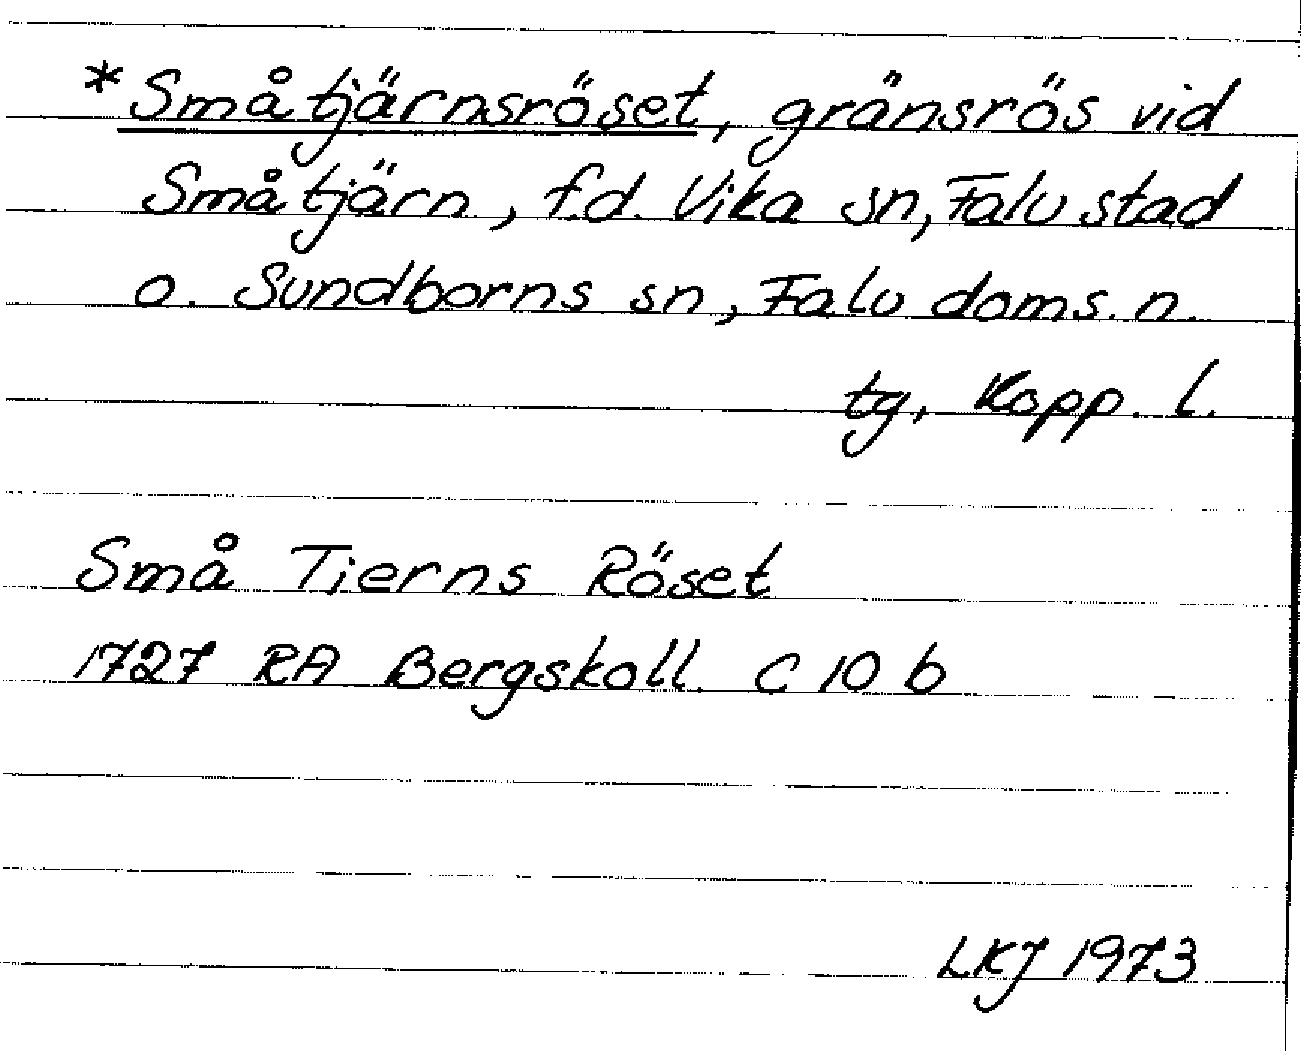 *Småtjärnsröset, gränsrös vid
Småtjärn, f.d. Vika sn, Falu stad
o. Sundborns sn, Falu doms.n.
tg, Kopp. l.
Små Tierns Röset
1727 RA Bergskoll. C 10 b
LKJ 1973